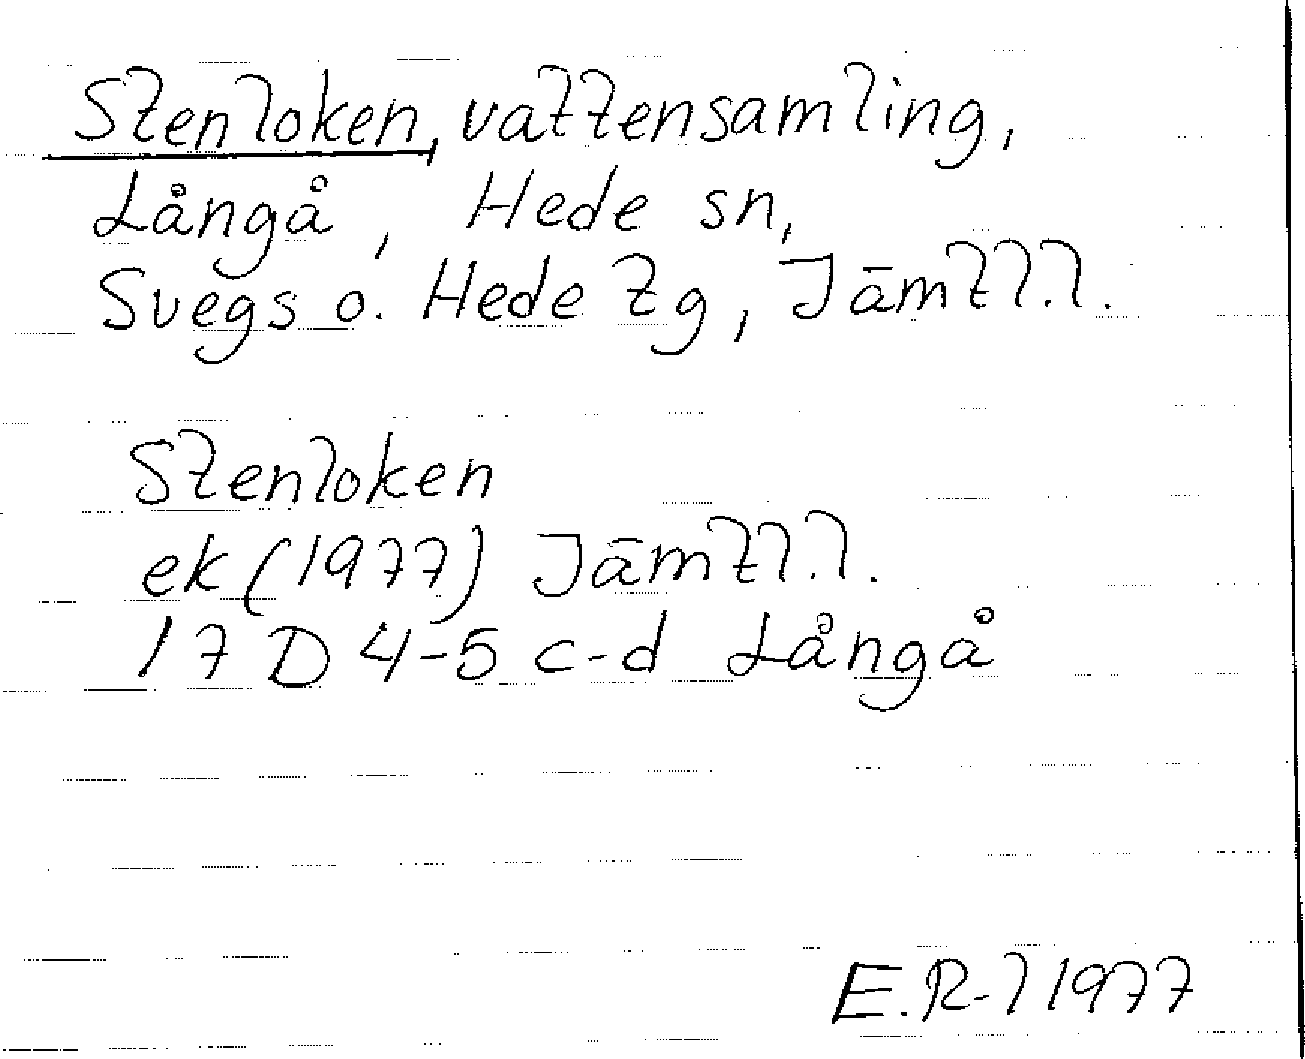 Stenloken, vattensamling,
Långå, Hede sn,
Svegs o. Hede tg, Jämtl.l.
Stenloken
ek (1977) Jämtl.l.
17 D 4-5 c-d Långå
E.R-l 1977